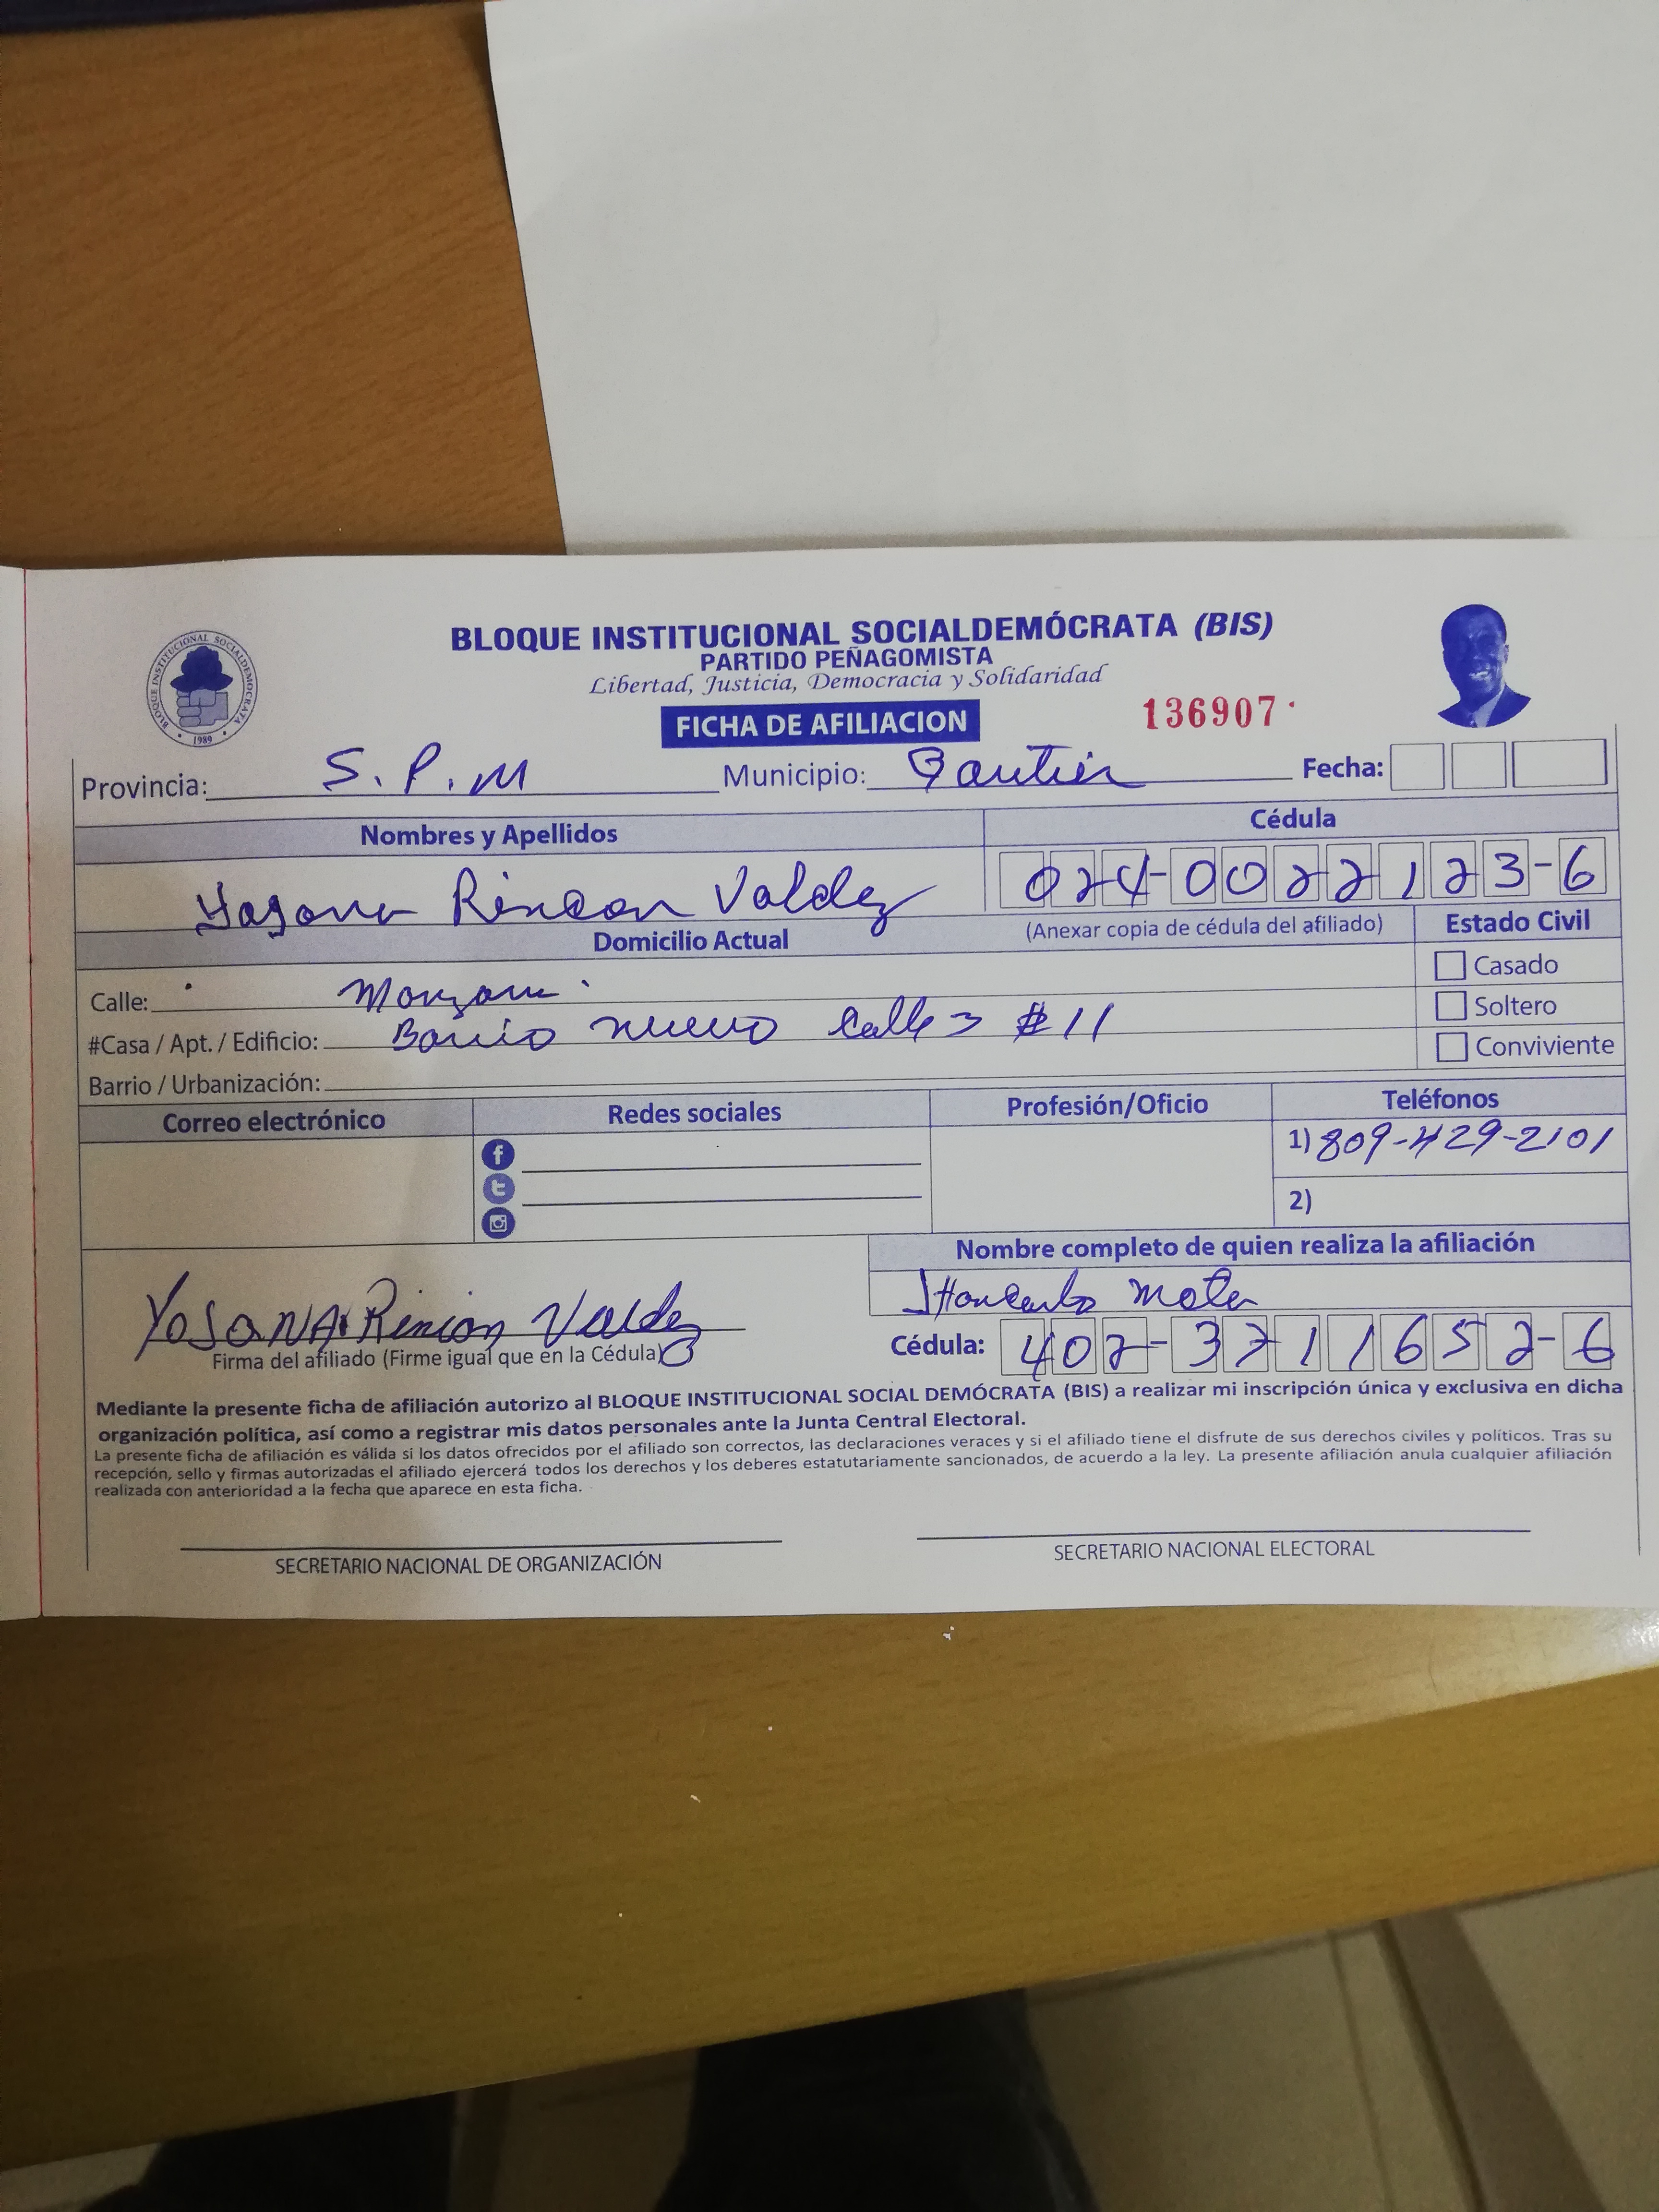 BLOQUE INSTITUCIONAL SOCIALDEMÓCRATA (BIS)
PARTIDO PEÑAGOMISTA
Libertad, Justicia, Democracia y Solidaridad
BLOQUE INSTITUCIONAL SOCIALDEMOCRATA
1989
FICHA DE AFILIACION
136907
Provincia: S.P.M Municipio: Gautier Fecha:
Nombres y Apellidos Cédula
Yasona Rincon Valdez 024-0022123-6
Domicilio Actual (Anexar copia de cédula del afiliado) Estado Civil
Calle: Casado
#Casa / Apt. / Edificio: Barrio nuevo Calle 3 #11 Soltero
Barrio / Urbanización: Conviviente
Correo electrónico Redes sociales Profesión/Oficio Teléfonos
1) 809-429-2101
2)
Nombre completo de quien realiza la afiliación
Mota
YoSaNA Rincon Valdez
Firma del afiliado (Firme igual que en la Cédula)
Cédula: 402-3711652-6
Mediante la presente ficha de afiliación autorizo al BLOQUE INSTITUCIONAL SOCIAL DEMÓCRATA (BIS) a realizar mi inscripción única y exclusiva en dicha
organización política, así como a registrar mis datos personales ante la Junta Central Electoral.
La presente ficha de afiliación es válida si los datos ofrecidos por el afiliado son correctos, las declaraciones veraces y si el afiliado tiene el disfrute de sus derechos civiles y políticos. Tras su
recepción, sello y firmas autorizadas el afiliado ejercerá todos los derechos y los deberes estatutariamente sancionados, de acuerdo a la ley. La presente afiliación anula cualquier afiliación
realizada con anterioridad a la fecha que aparece en esta ficha.
SECRETARIO NACIONAL DE ORGANIZACIÓN SECRETARIO NACIONAL ELECTORAL